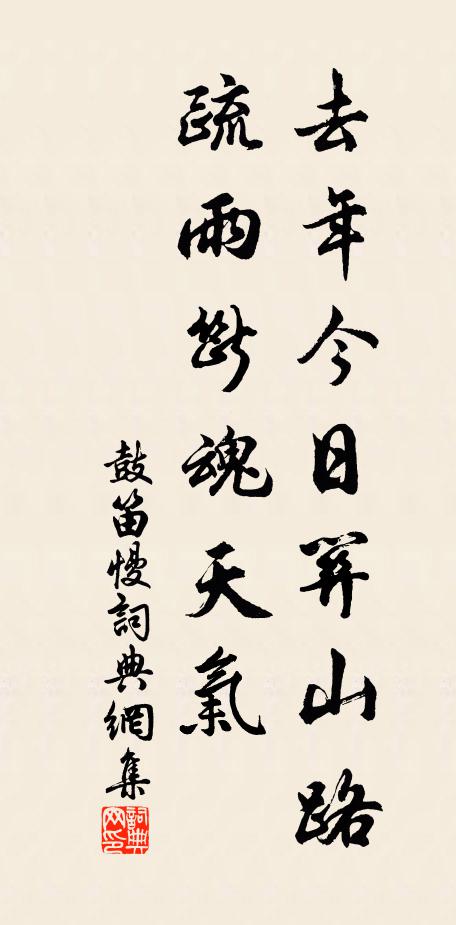 去年今日關山路
疏雨斷魂天氣
鼓笛慢詞典網集
詞典网印